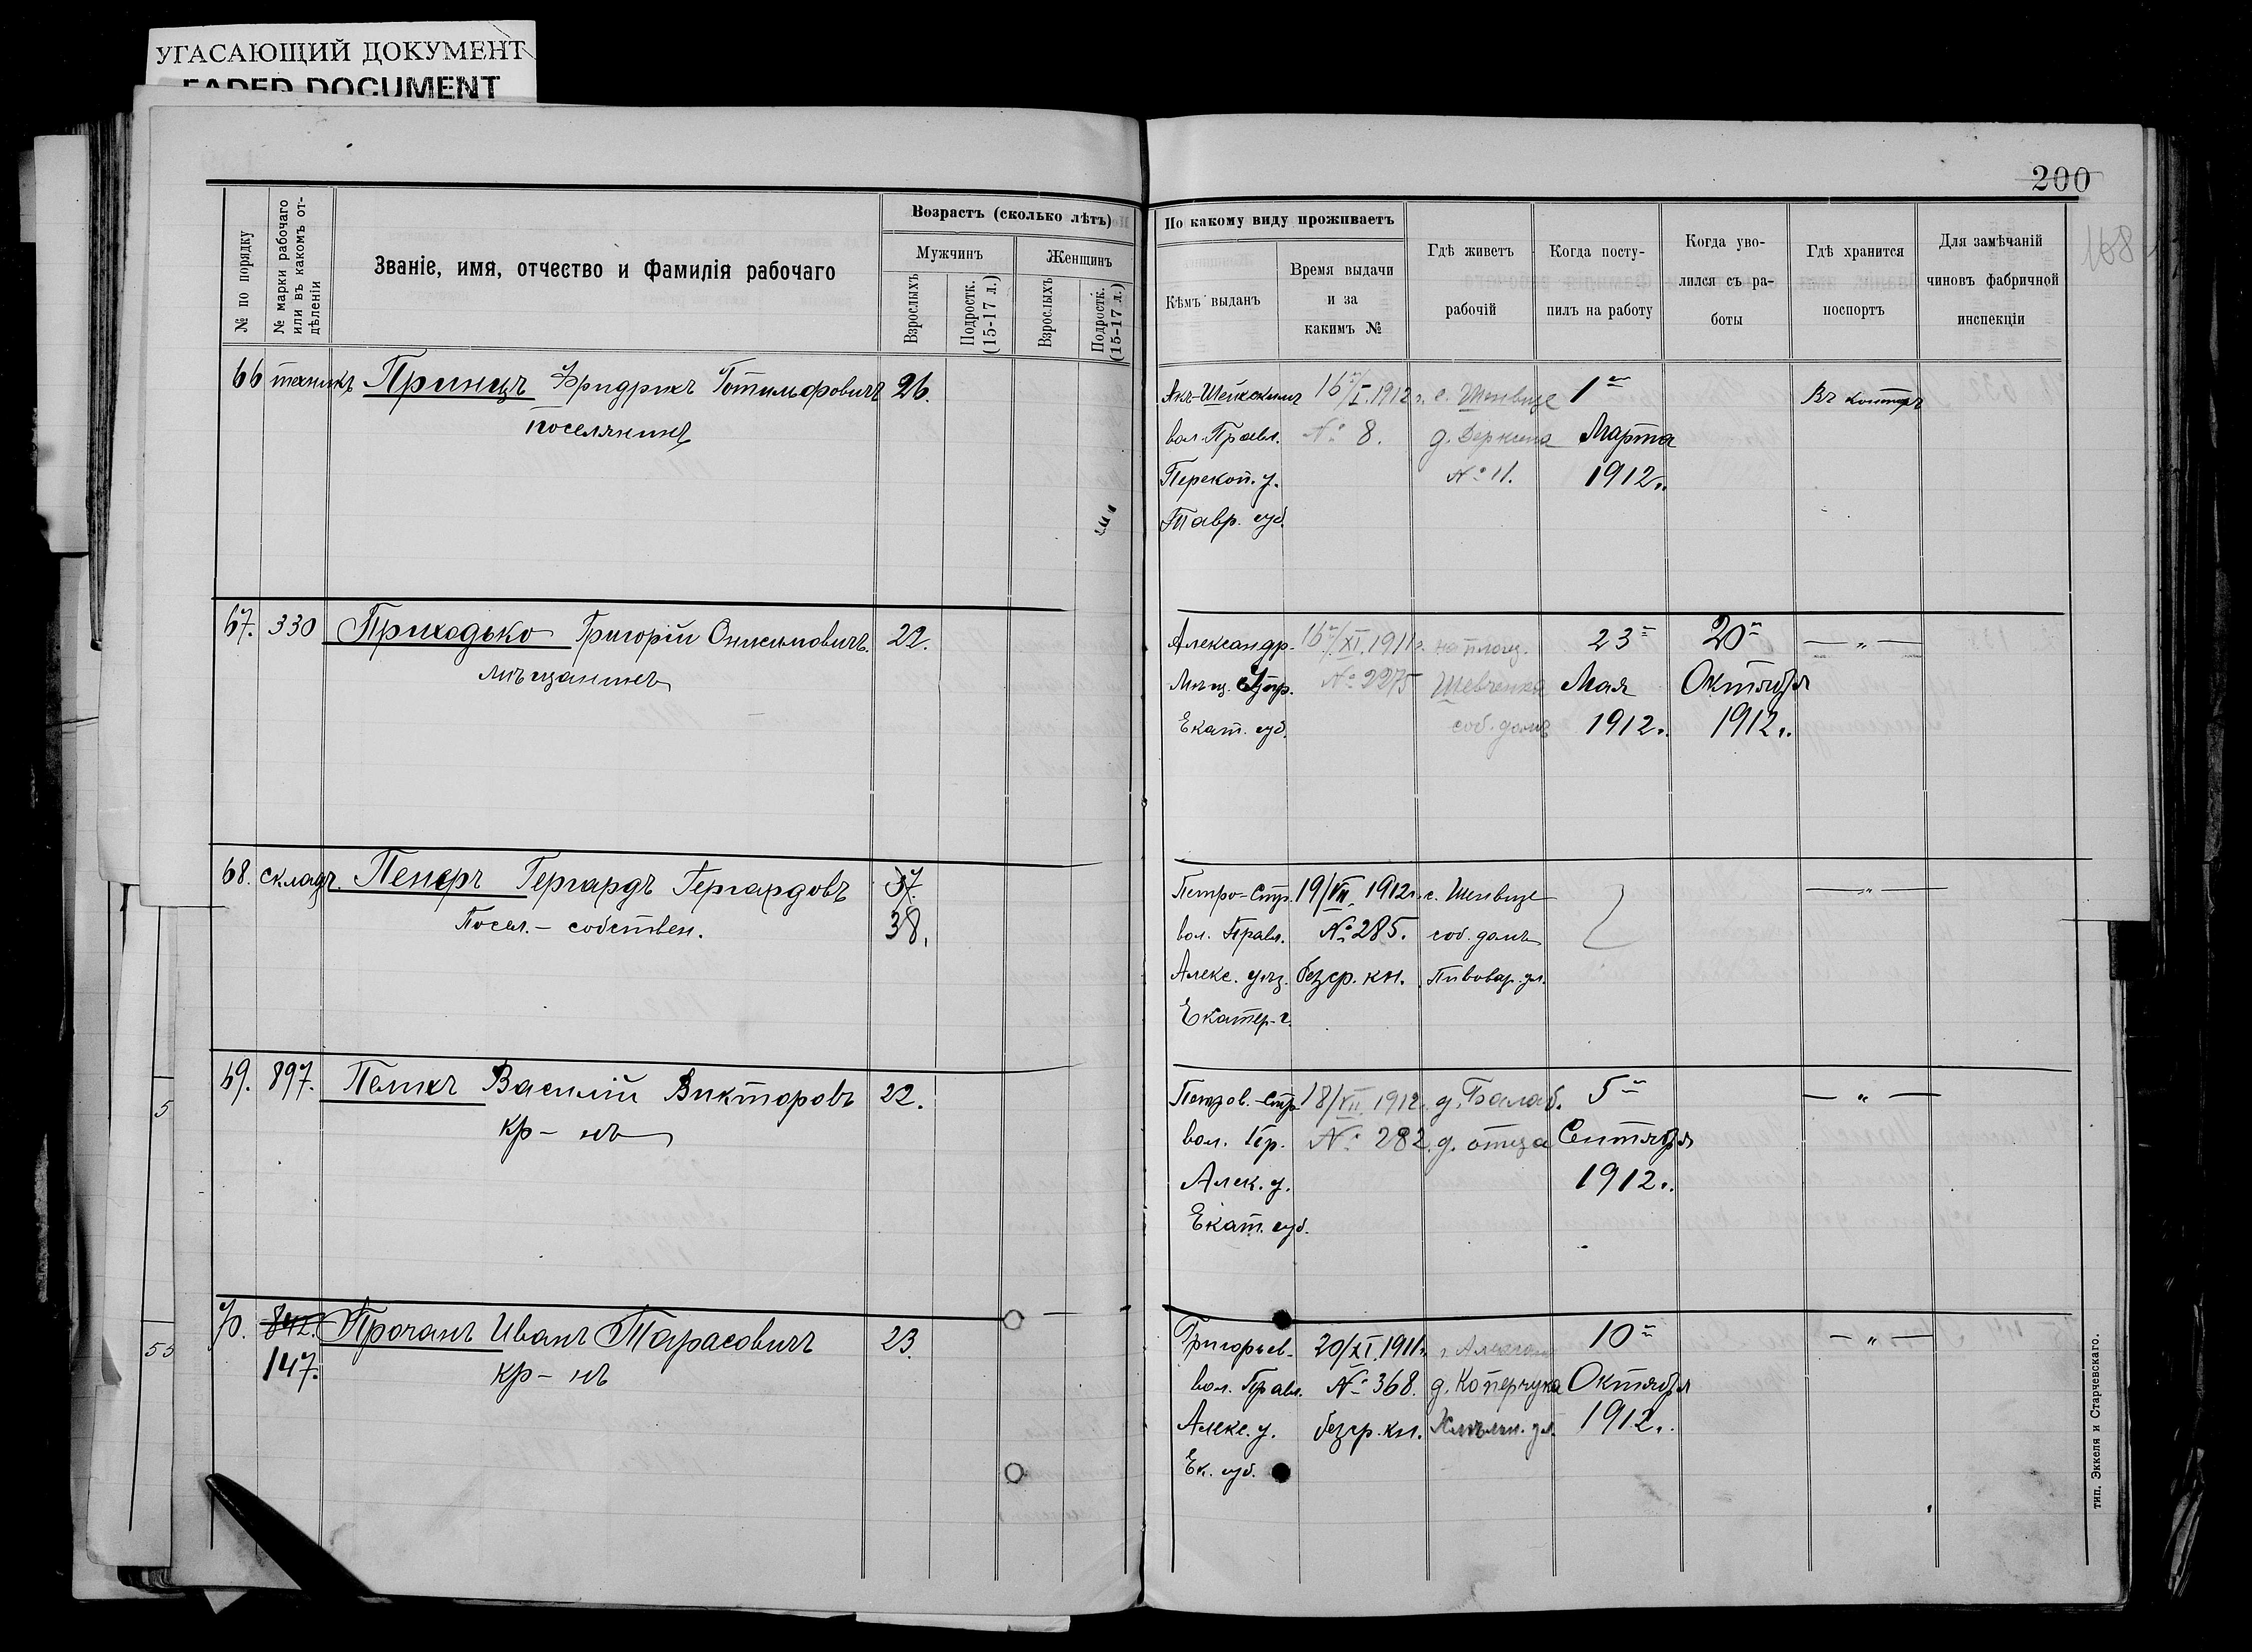 УГАСАЮЩИЙ ДОКУМЕНТ
FADED DOCUMENT
200
168
№ по порядку
№ марки рабочаго
или въ какомъ от-
дѣленіи
Званіе, имя, отчество и фамилія рабочаго
Возрастъ (сколько лѣтъ)
Мужчинъ
Женщинъ
Взрослыхъ
Подростк.
(15-17 л.)
Взрослыхъ
Подростк.
(15-17 л.)
По какому виду проживаетъ
Кѣмъ выданъ
Время выдачи
и за
какимъ №
Гдѣ живетъ
рабочій
Когда посту-
пилъ на работу
Когда уво-
лился съ ра-
боты
Гдѣ хранится
поспортъ
Для замѣчаній
чиновъ фабричной
инспекціи
66 техникъ Принцъ Фридрихъ Готильфовичъ 26.
поселянинъ
Акъ-Шейхскимъ
вол. Правл.
Перекоп. у.
Тавр. губ.
16/I. 1912 г.
№ 8.
с. Шенвизе
№ 11.
1
Марта
1912 г.
Въ конторѣ
67. 330 Приходько Григорій Онисимовичъ. 22.
мѣщанинъ
Александр.
Мѣщ. Упр.
Екат. губ.
16/XI. 1911 г.
№ 2275
на площ.
Шевченка
соб. домъ
23
Мая
1912 г.
20
Октября
1912 г.
— „ —
68. складъ. Пенеръ Гергардъ Гергардовъ 37.
Посел. - собствен. 38.
Петро-Стр.
вол. Правл.
Алекс. уѣз.
Екатер. г.
19/VII. 1912 г.
№ 285.
безср. кн.
с. Шенвизе
соб. домъ
Пивовар. ул.
— „ —
69. 897. Пелихъ Василій Викторовъ 22.
кр-нъ
вол. Пр.
Алек. у.
Екат. губ.
18/VII. 1912 г.
№ 282.
д. Балаб.
д. отца
5
Сентября
1912 г.
— „ —
70. 842. Прочанъ Иванъ Тарасовичъ 23.
147. кр-нъ
Григорьев.
вол. Правл.
Алекс. у.
Ек. губ.
20/XI. 1911 г.
№ 368.
безср. кн.
10
Октября
1912 г.
— „ —
тип. Эккеля и Старчевскаго.
5
55